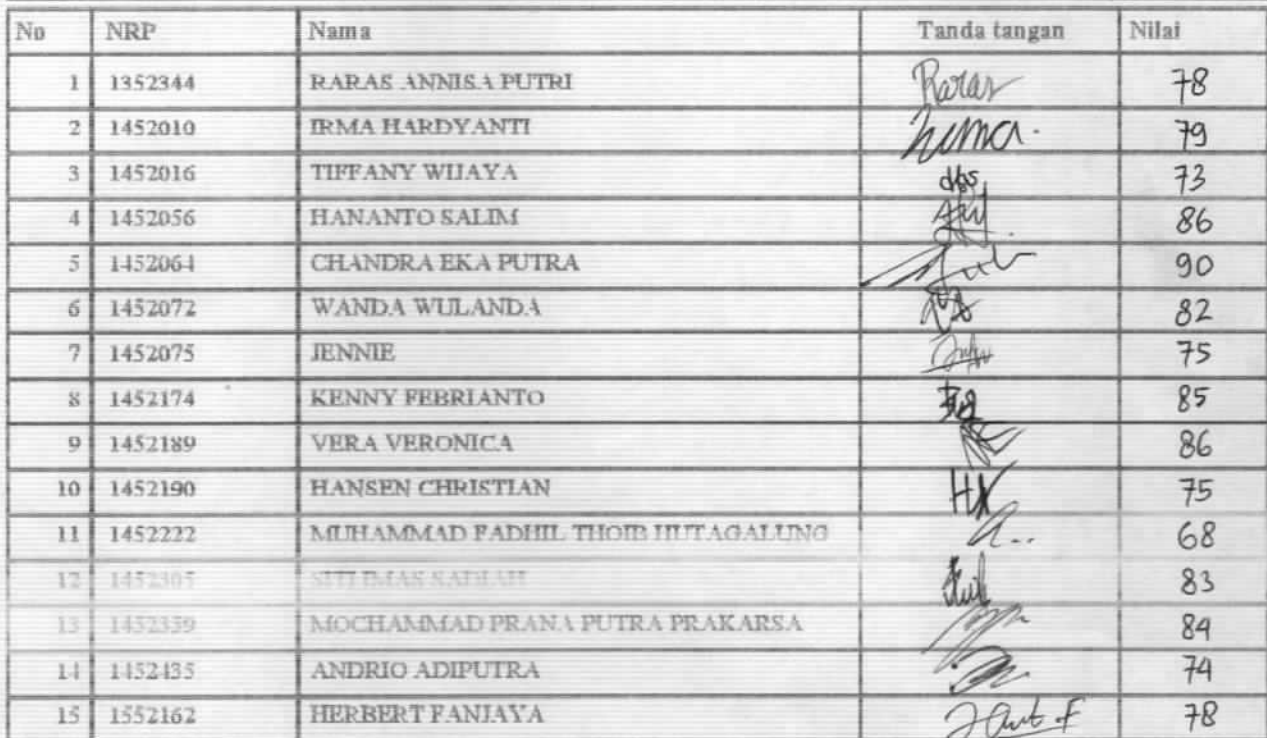 No NRP Nama Tanda tangan Nilai
1 1352344 RARAS ANNISA PUTRI Raras 78
2 1452010 IRMA HARDYANTI 79
3 1452016 TIFFANY WIJAYA 73
4 1452056 HANANTO SALIM 86
5 1452064 CHANDRA EKA PUTRA 90
6 1452072 WANDA WULANDA 82
7 1452075 JENNIE 75
8 1452174 KENNY FEBRIANTO 85
9 1452189 VERA VERONICA 86
10 1452190 HANSEN CHRISTIAN 75
11 1452222 MUHAMMAD FADHIL THOIB HUTAGALUNG 68
12 1452305 SITI IMAS SADIAH 83
13 1452359 MOCHAMMAD PRANA PUTRA PRAKARSA 84
14 1452435 ANDRIO ADIPUTRA 74
15 1552162 HERBERT FANJAYA 78